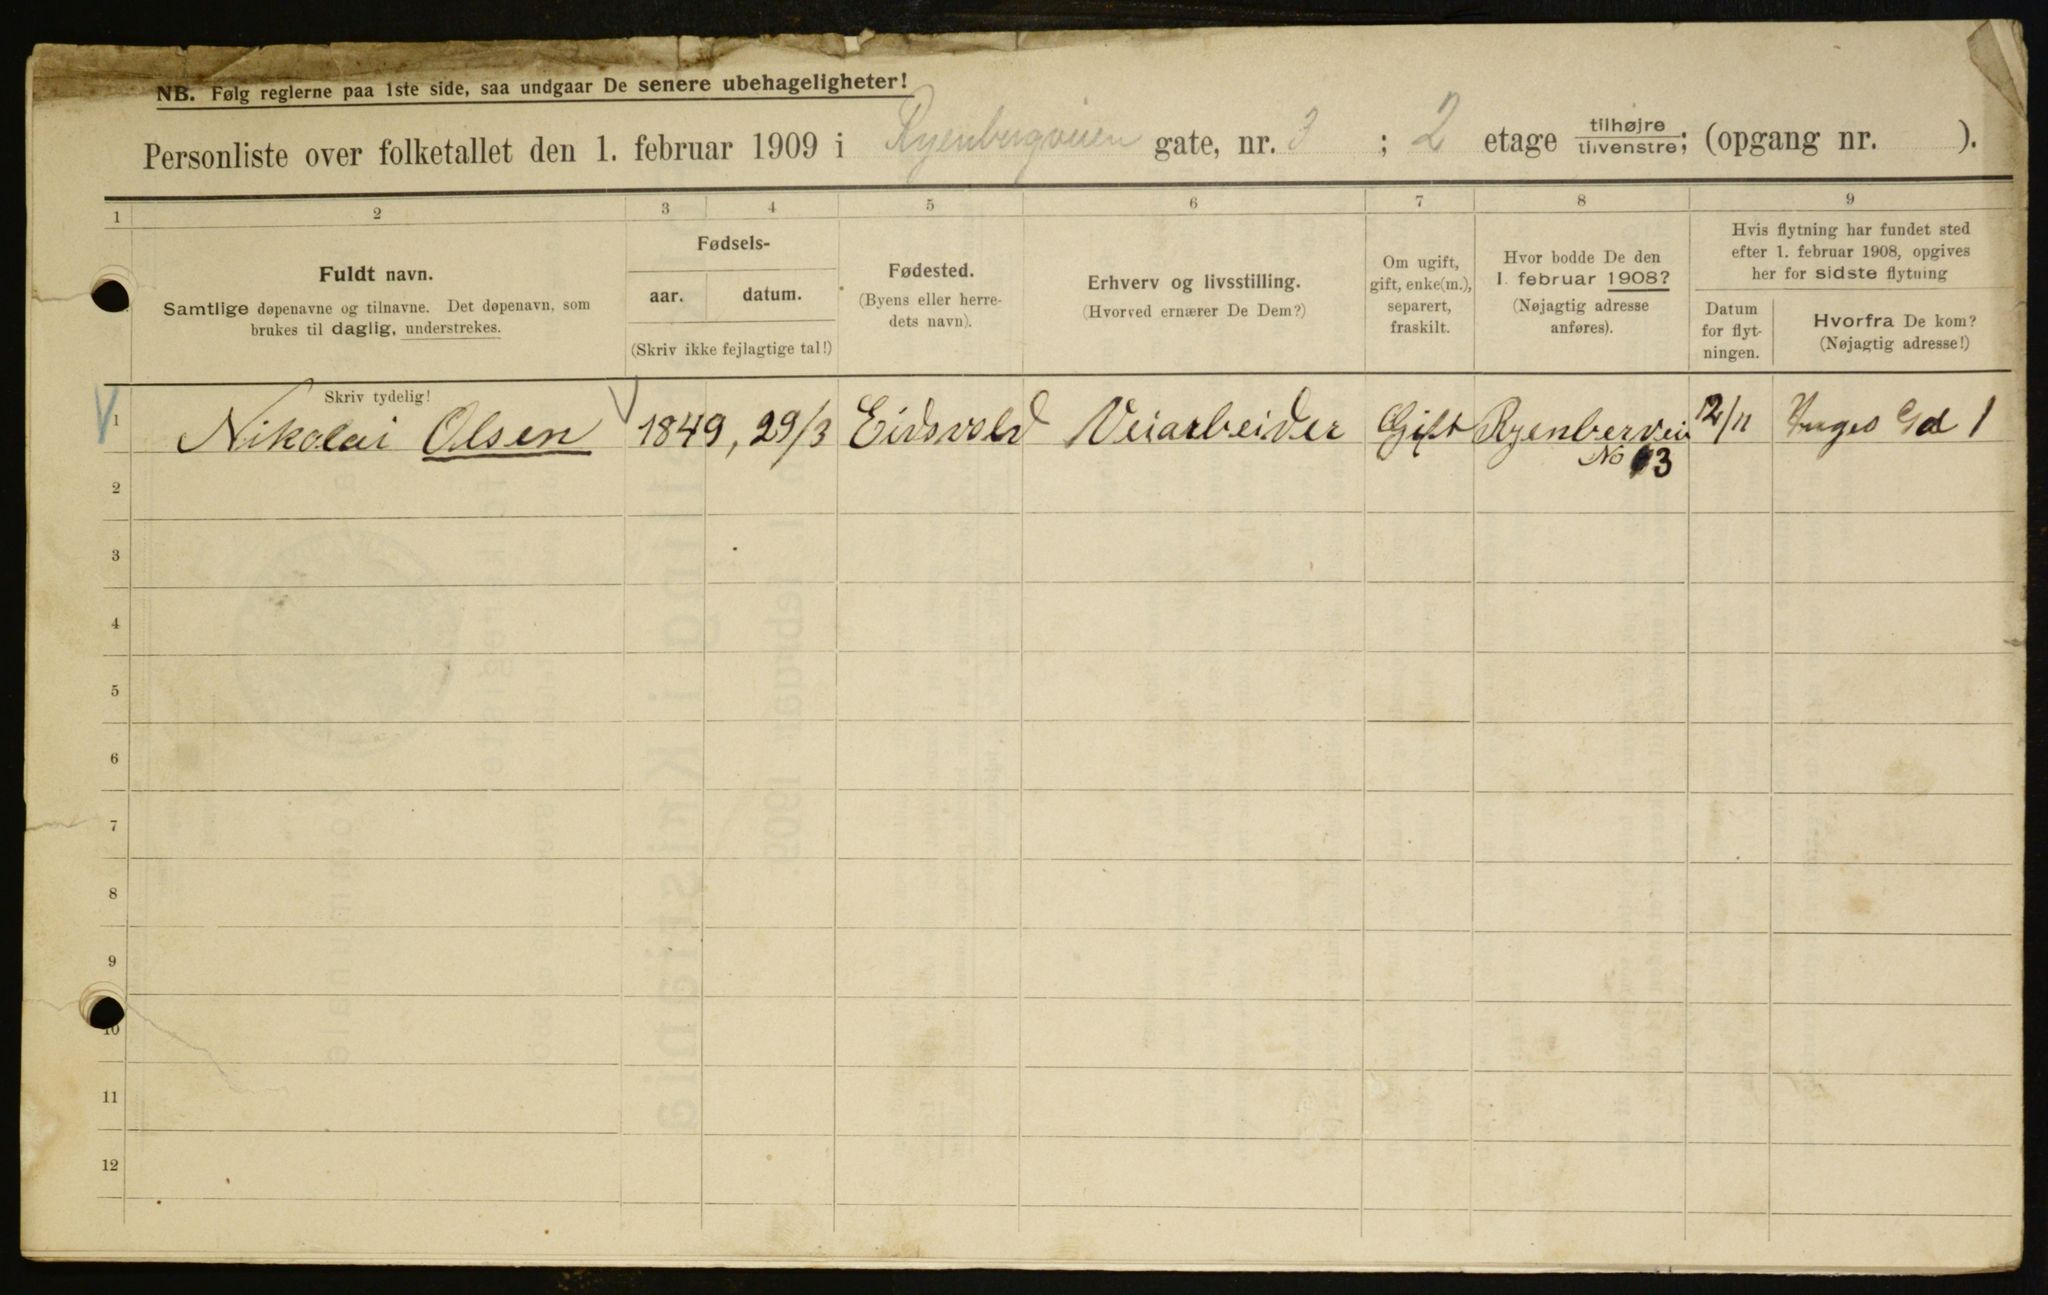 NB. Følg reglerne paa 1ste side, saa undgaar De senere ubehageligheter!
Personliste over folketallet den 1. februar 1909 i Ryenbergveien gate, nr. 3 ; 2 etage tilhøjre tilvenstre; (opgang nr. ).
1 2 3 4 5 6 7 8 9
Fuldt navn.
Samtlige døpenavne og tilnavne. Det døpenavn, som
brukes til daglig, understrekes.
Fødsels-
aar. datum.
(Skriv ikke fejlagtige tal!)
Fødested.
(Byens eller herre-
dets navn).
Erhverv og livsstilling.
(Hvorved ernærer De Dem?)
Om ugift,
gift, enke(m.),
separert,
fraskilt.
Hvor bodde De den
1. februar 1908?
(Nøjagtig adresse
anføres).
Hvis flytning har fundet sted
efter 1. februar 1908, opgives
her for sidste flytning
Datum
for flyt-
ningen.
Hvorfra De kom?
(Nøjagtig adresse!)
Skriv tydelig!
1 Nikolai Olsen 1849, 29/3 Eidsvold Veiarbeider Gift Ryenbervei 12/11 Gd 1
No 3
2
3
4
5
6
7
8
9
10
11
12